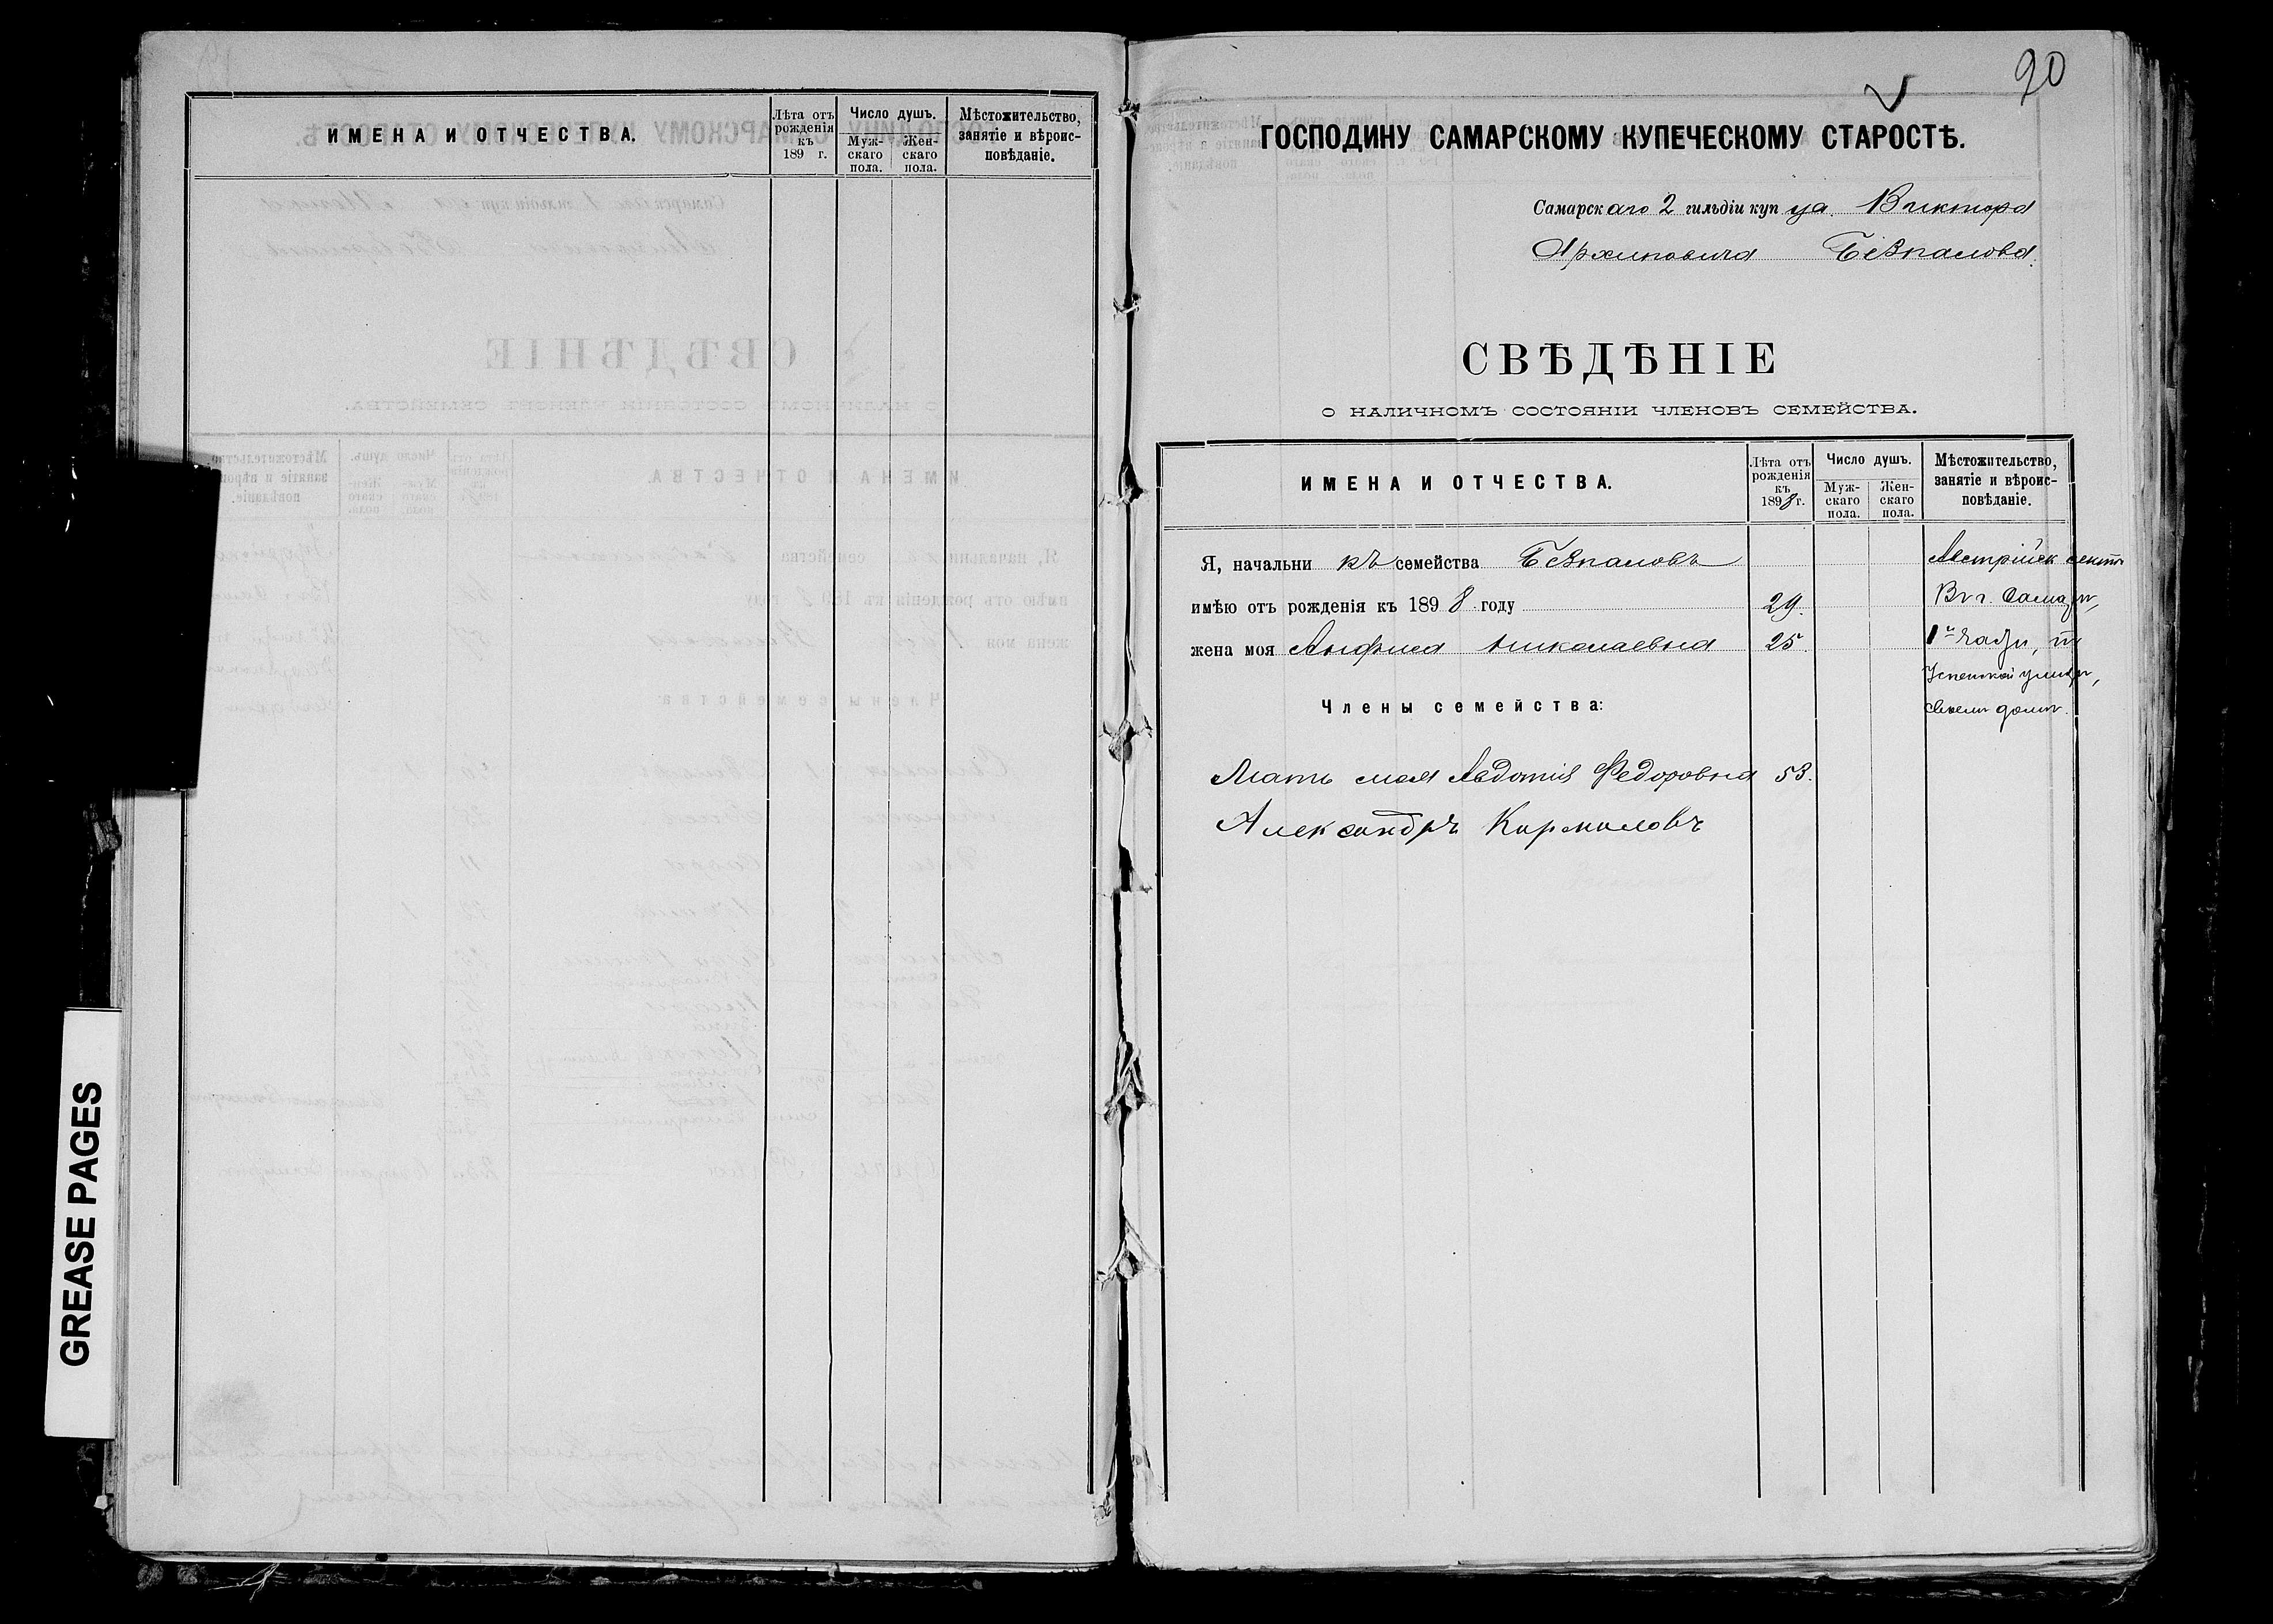 ИМЕНА И ОТЧЕСТВА.
Лѣта отъ рожденія къ 189 г.
Число душъ.
Муж-скаго пола.
Жен-скаго пола.
Мѣстожительство, занятіе и вѣроис-повѣданіе.
GREASE PAGES
90
ГОСПОДИНУ САМАРСКОМУ КУПЕЧЕСКОМУ СТАРОСТѢ.
Самарскаго 2 гильдіи купца Виктора
Архиповича Безпалова.
СВѢДѢНІЕ
О НАЛИЧНОМЪ СОСТОЯНІИ ЧЛЕНОВЪ СЕМЕЙСТВА.
ИМЕНА И ОТЧЕСТВА.
Лѣта отъ рожденія къ 1898 г.
Число душъ.
Муж-скаго пола.
Жен-скаго пола.
Мѣстожительство, занятіе и вѣроис-повѣданіе.
Я, начальникъ семейства Безпаловъ Австрійск секты
имѣю отъ рожденія къ 1898 году 29. В г. Самарѣ,
жена моя Анфиса Николаевна 25 1й части,
Успенской улицѣ,
Члены семейства: своемъ домѣ.
Мать моя Авдотія Федоровна 53.
Александръ Кирилловъ